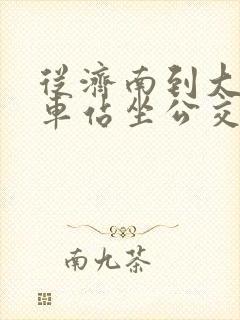 從濟南到大
車估坐公交
南九茶